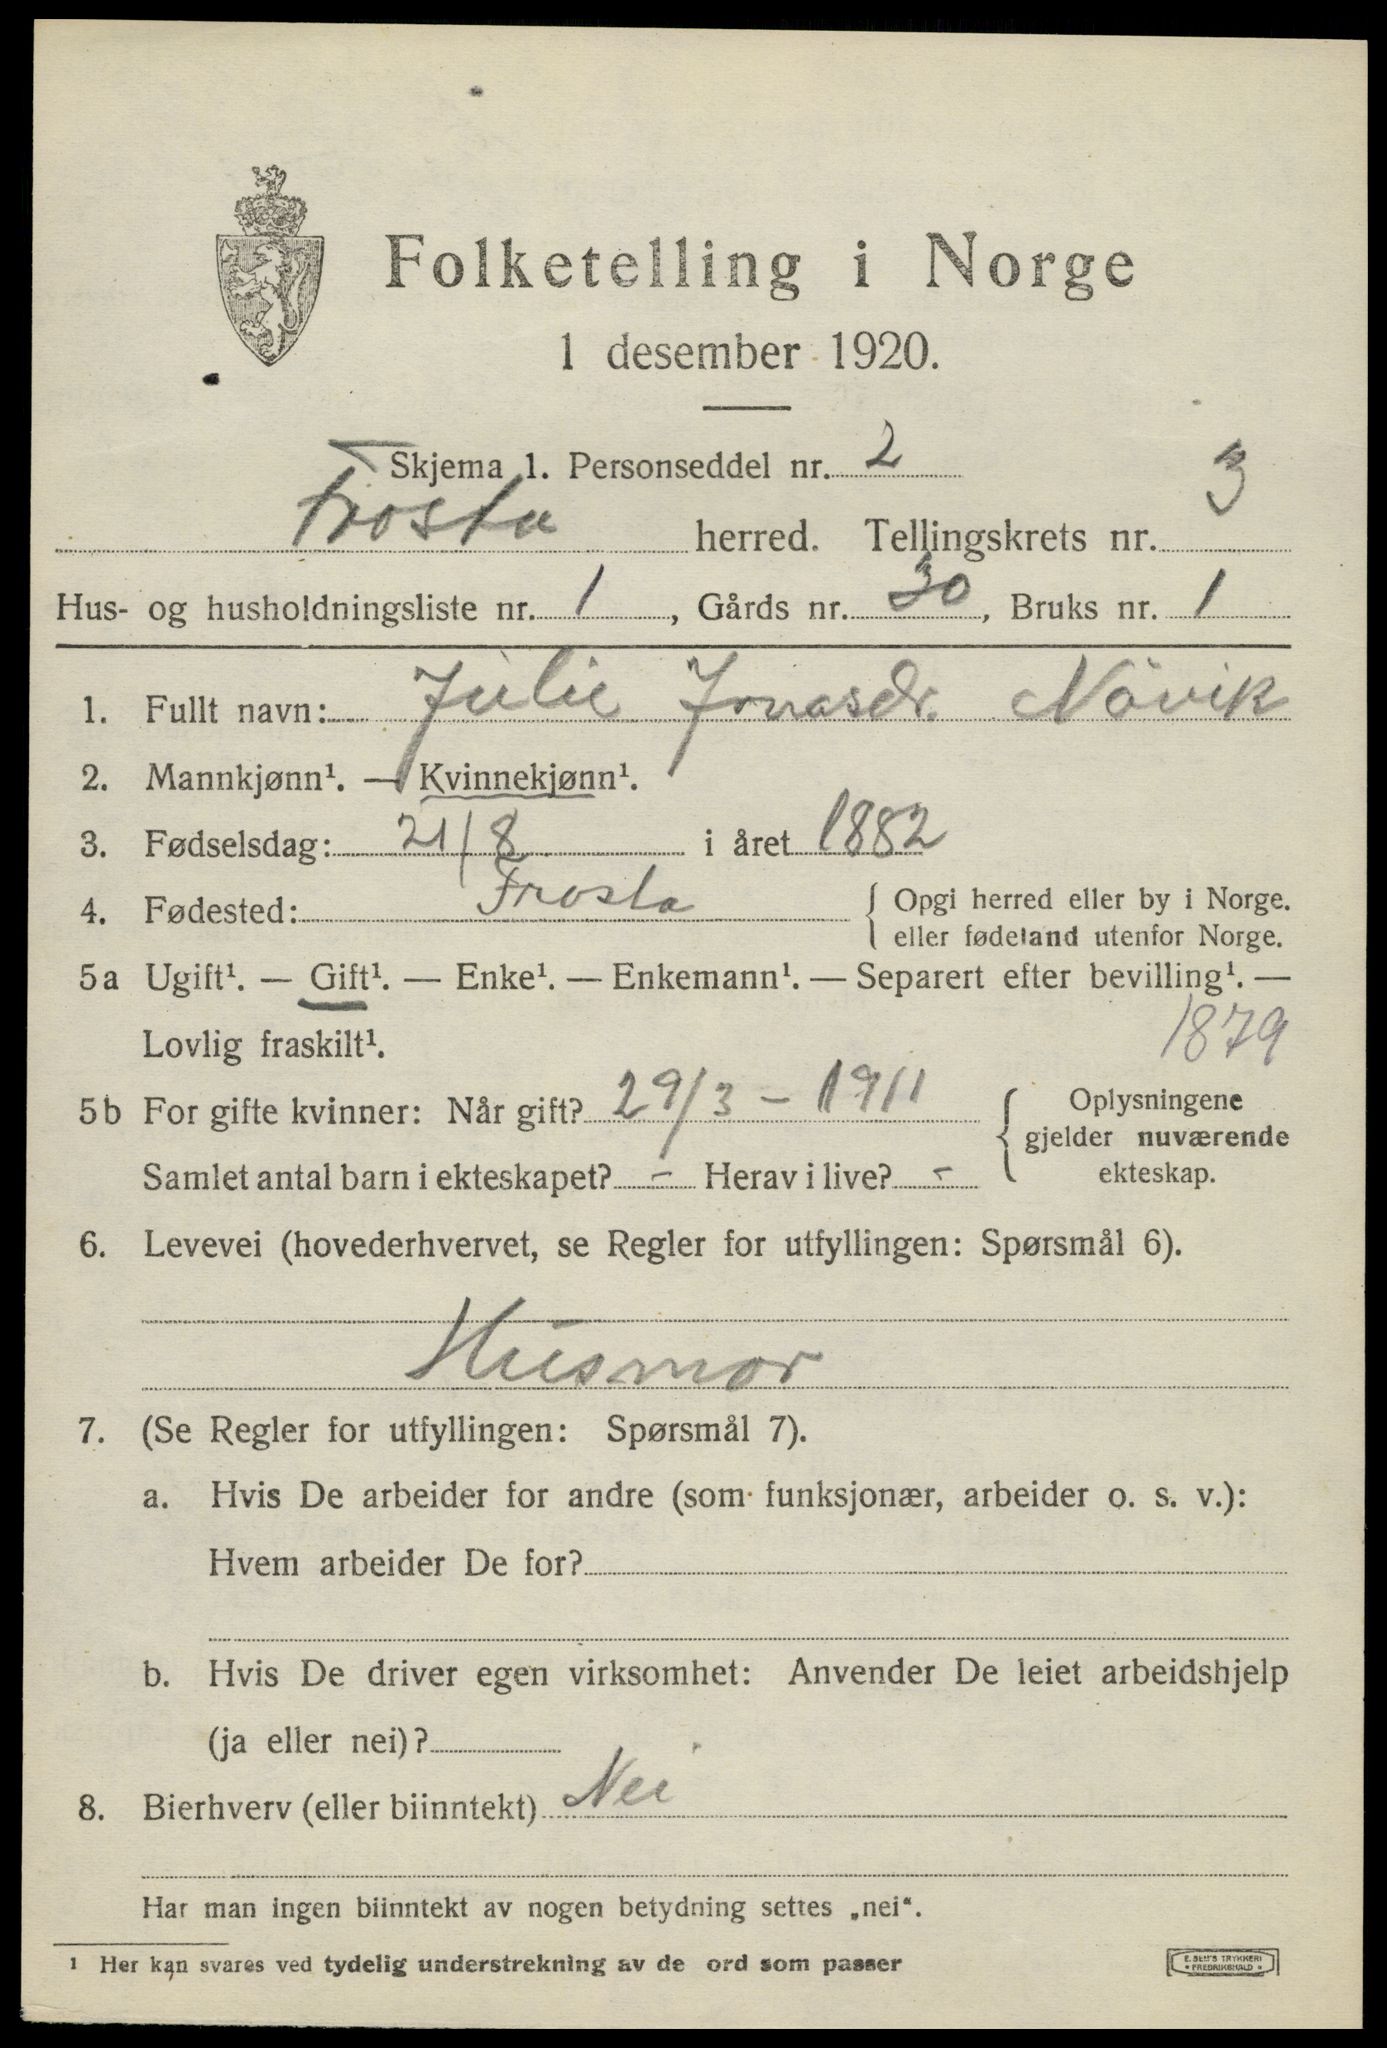 Folketelling i Norge
1 desember 1920.
Skjema 1. Personseddel nr. 2
Frosta herred. Tellingskrets nr. 3
Hus- og husholdningsliste nr. 1, Gårds nr. 30, Bruks nr. 1
1. Fullt navn: Julie Jonasdr. Növik
2. Mannkjønn¹. — Kvinnekjønn¹.
3. Fødselsdag: 21/8 i året 1882
4. Fødested: Frosta { Opgi herred eller by i Norge.
eller fødeland utenfor Norge.
5a Ugift¹. — Gift¹. — Enke¹. — Enkemann¹. — Separert efter bevilling¹. —
Lovlig fraskilt¹. 1879
5b For gifte kvinner: Når gift? 29/3 - 1911 { Oplysningene
gjelder nuværende
Samlet antal barn i ekteskapet? - Herav i live? - ekteskap.
6. Levevei (hovederhvervet, se Regler for utfyllingen: Spørsmål 6).
Husmor
7. (Se Regler for utfyllingen: Spørsmål 7).
a. Hvis De arbeider for andre (som funksjonær, arbeider o. s. v.):
Hvem arbeider De for?
b. Hvis De driver egen virksomhet: Anvender De leiet arbeidshjelp
(ja eller nei)?
8. Bierhverv (eller biinntekt) Nei
Har man ingen biinntekt av nogen betydning settes „nei“.
¹ Her kan svares ved tydelig understrekning av de ord som passer
E. SEM'S TRYKKERI
FREDRIKSHALD